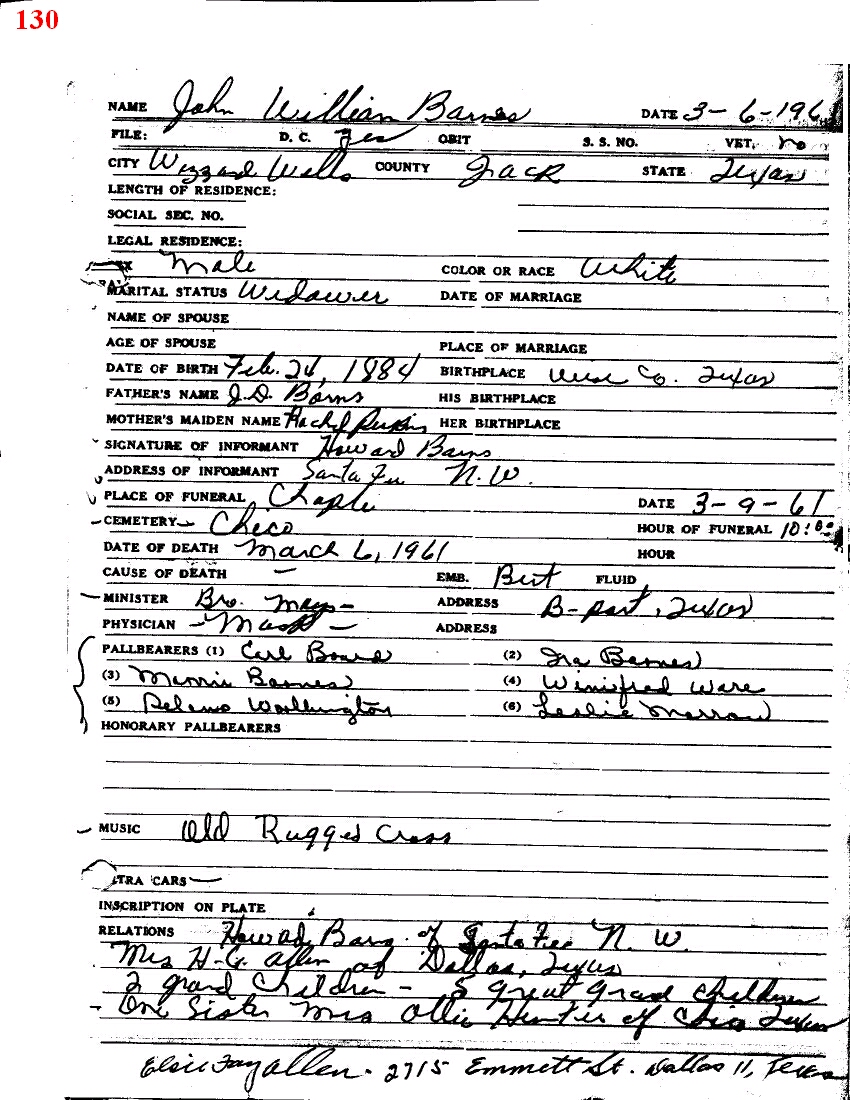 130
NAME John William Barnes DATE 3-6-196
FILE: D. C. Yes OBIT S. S. NO. VET. no
CITY Wizzard Wells COUNTY Jack STATE Texas
LENGTH OF RESIDENCE:
SOCIAL SEC. NO.
LEGAL RESIDENCE:
Male COLOR OR RACE White
MARITAL STATUS Widower DATE OF MARRIAGE
NAME OF SPOUSE
AGE OF SPOUSE PLACE OF MARRIAGE
DATE OF BIRTH Feb. 24, 1884 BIRTHPLACE Wise Co. Texas
FATHER'S NAME J.D. Barns HIS BIRTHPLACE
MOTHER'S MAIDEN NAME Rachel HER BIRTHPLACE
SIGNATURE OF INFORMANT Howard Barns
ADDRESS OF INFORMANT Santa Fee N.W.
PLACE OF FUNERAL Chaple DATE 3-9-61
CEMETERY Chico HOUR OF FUNERAL 10:00
DATE OF DEATH March 6, 1961 HOUR
CAUSE OF DEATH — EMB. Burt FLUID
MINISTER Bro. Mays - ADDRESS B-port, Texas
PHYSICIAN - - ADDRESS
PALLBEARERS (1) Carl Board (2) Ira Barnes
(3) Barnes (4) Winifred Ware
(5) Delano Worthington (6) Leslie Morrow
HONORARY PALLBEARERS
MUSIC Old Rugged Cross
TRA CARS
INSCRIPTION ON PLATE
RELATIONS Howard Barns of Santa Fee N. W.
Mrs H-G. Allen of Dallas, Texas
2 grand Children - 5 great grand children
- One Sister Mrs Ollie Hunter of Chico Texas
Elsie Fay Allen - 2715 Emmett St. Dallas 11, Texas